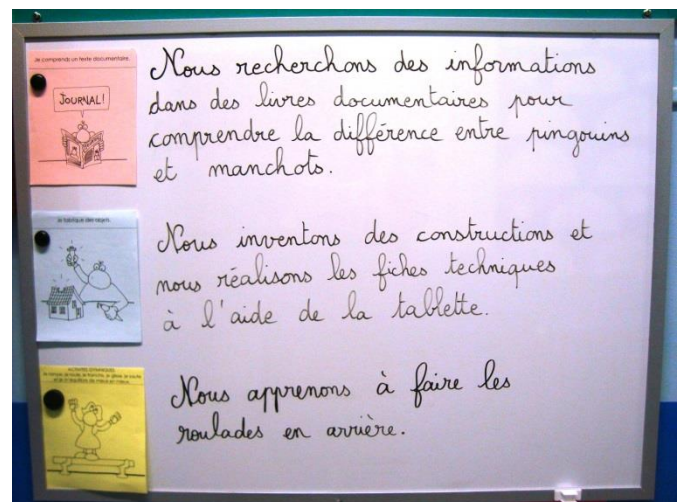 Je comprends un texte documentaire.
JOURNAL!
Nous recherchons des informations
dans des livres documentaires pour
comprendre la différence entre pingouins
et manchots.
Je fabrique des objets.
Nous inventons des constructions et
nous réalisons les fiches techniques
à l'aide de la tablette.
ACTIVITÉS GYMNIQUES
Nous apprenons à faire les
roulades en arrière.